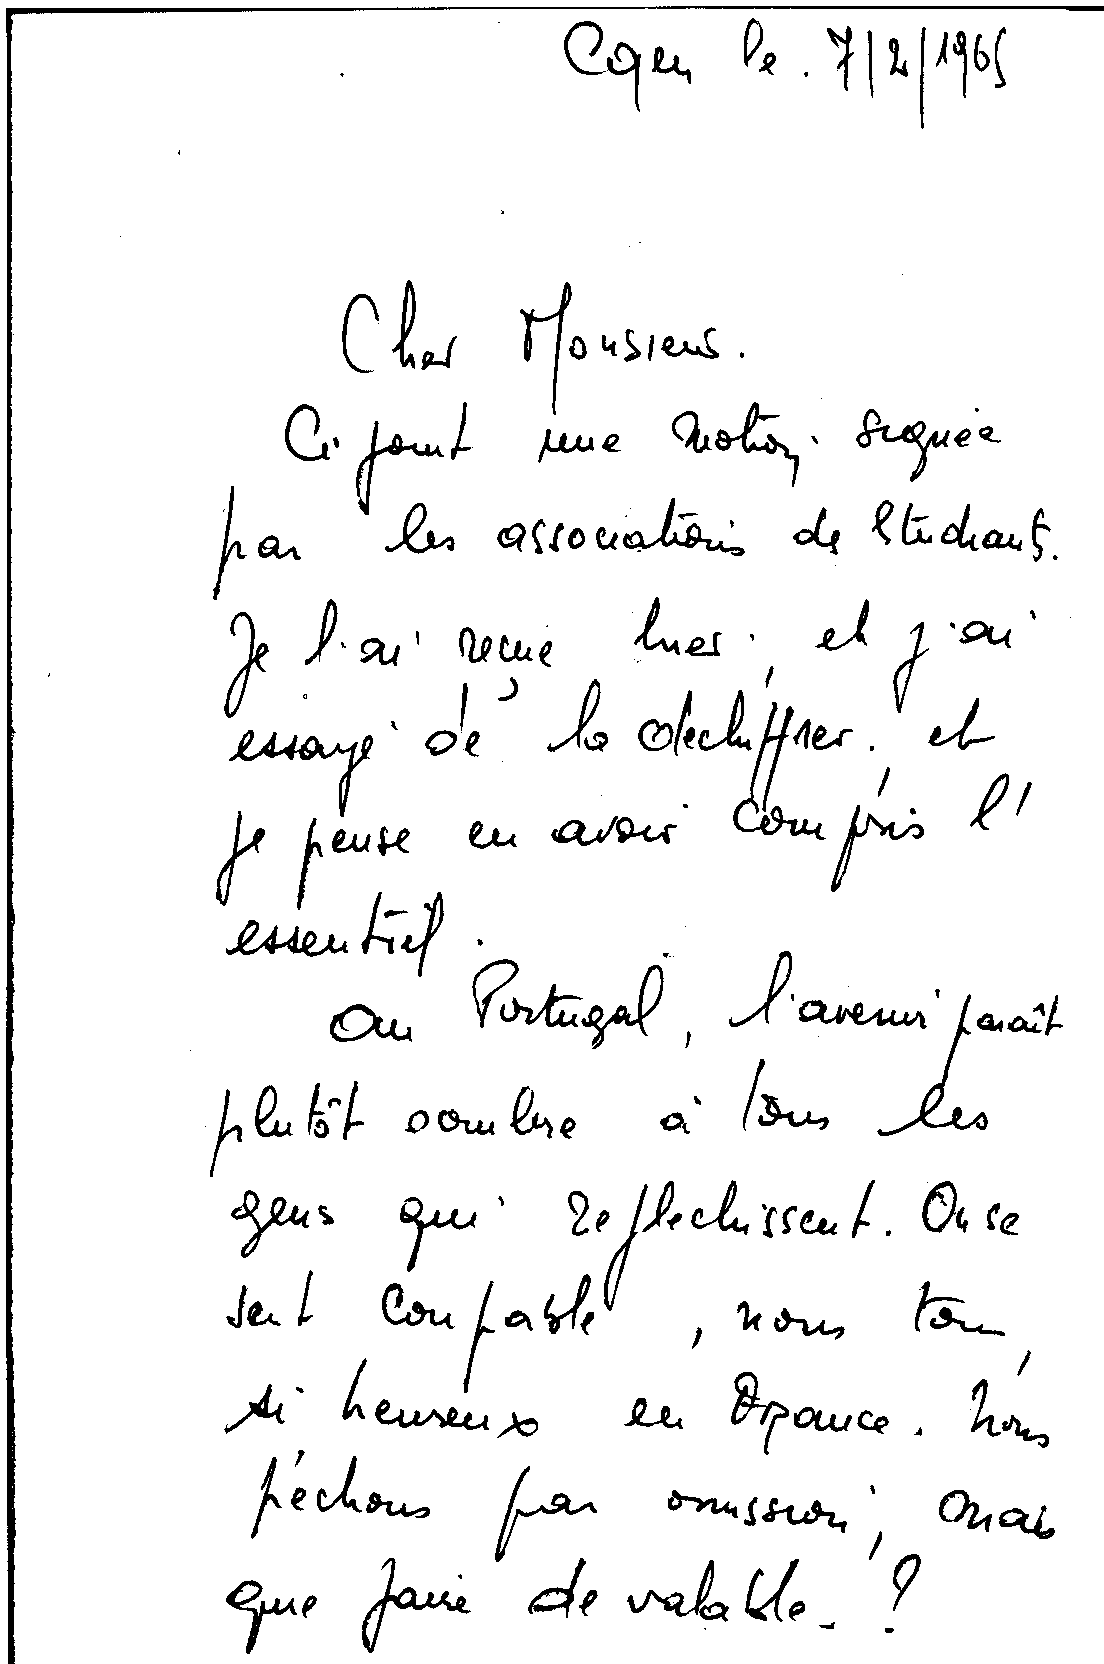 Caen le 7/2/1965
Cher Monsieur.
Ci joint une motion signée
par les associations de Etudiants.
Je l'ai reçue hier, et j'ai
essayé de la dechiffrer, et
je pense en avoir compris l'
essentiel.
Au Portugal, l'avenir paraît
plutôt sombre à tous les
gens qui reflechissent. On se
sent coupable, nous tous,
si heureux en France. Nous
péchons par omission, mais
que faire de valable. ?